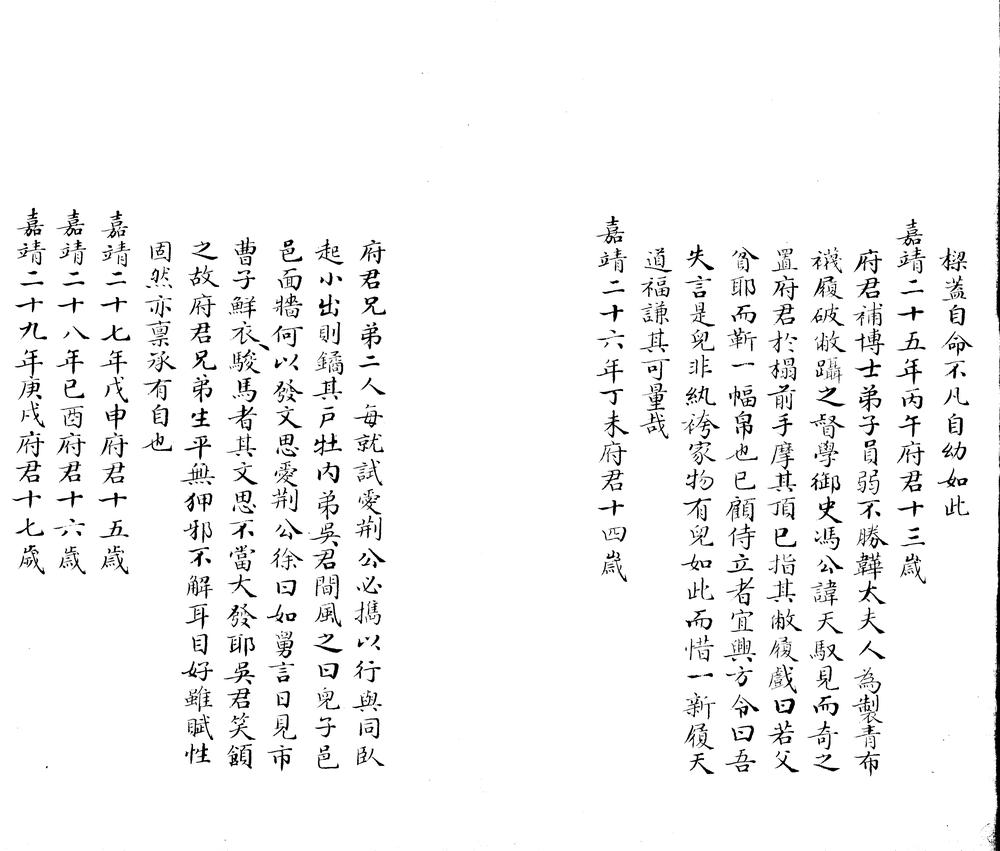 樑蓋自命不凡自幼如此
嘉靖二十五年丙午府君十三歲
府君補博士弟子員弱不勝韡太夫人為製青布
襪履破敝躡之督學御史馮公諱天馭見而奇之
置府君於榻前手摩其頂已指其敝履戲曰若父
貧耶而靳一幅帛也已顧侍立者宜興方令曰吾
失言是兒非紈袴家物有兒如此而惜一新履天
道福謙其可量哉
嘉靖二十六年丁未府君十四歲
府君兄弟二人每就試愛荆公必攜以行與同臥
起小出則鐍其戶牡內弟吳君間風之曰兒子邑
邑面牆何以發文思愛荆公徐曰如舅言日見市
曹子鮮衣駿馬者其文思不當大發耶吳君笑頷
之故府君兄弟生平無狎邪不解耳目好雖賦性
固然亦禀承有自也
嘉靖二十七年戊申府君十五歲
嘉靖二十八年己酉府君十六歲
嘉靖二十九年庚戌府君十七歲